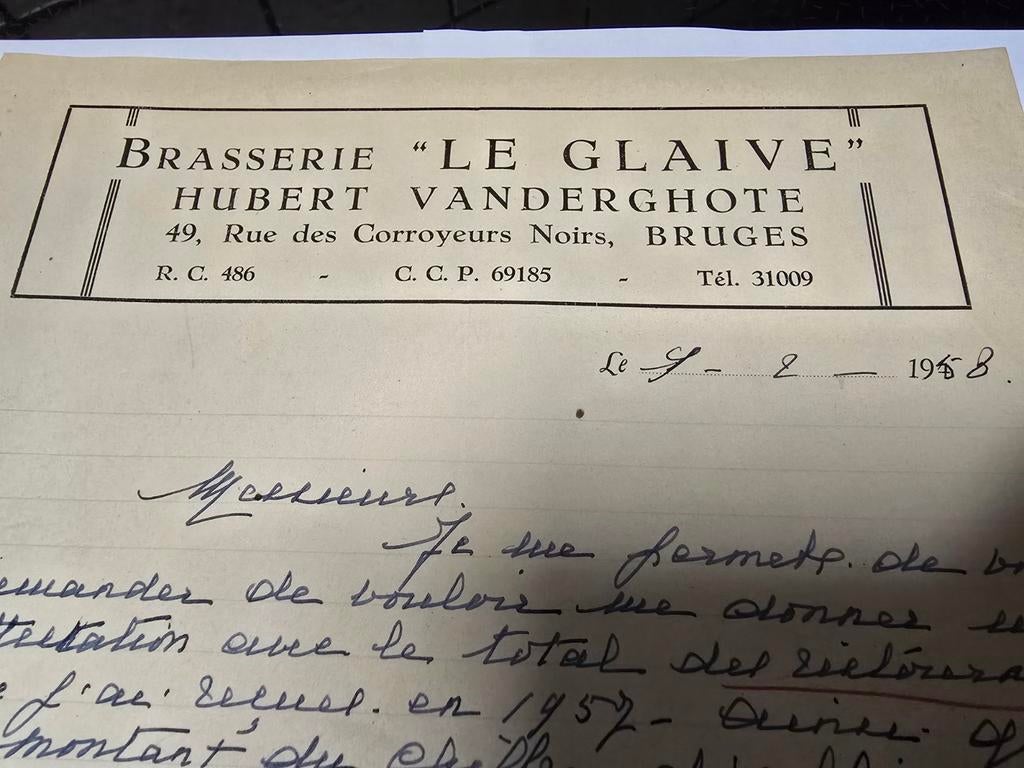 BRASSERIE “LE GLAIVE”
HUBERT VANDERGHOTE
49, Rue des Corroyeurs Noirs, BRUGES
R. C. 486 - C. C. P. 69185 - Tél. 31009
Le 9 - 2 - 1958.
Messieurs.
Je me permets de
emander de vouloir me donner
ttestation avec le total des
j'ai reçues en 1957 - Ainsi
montant du